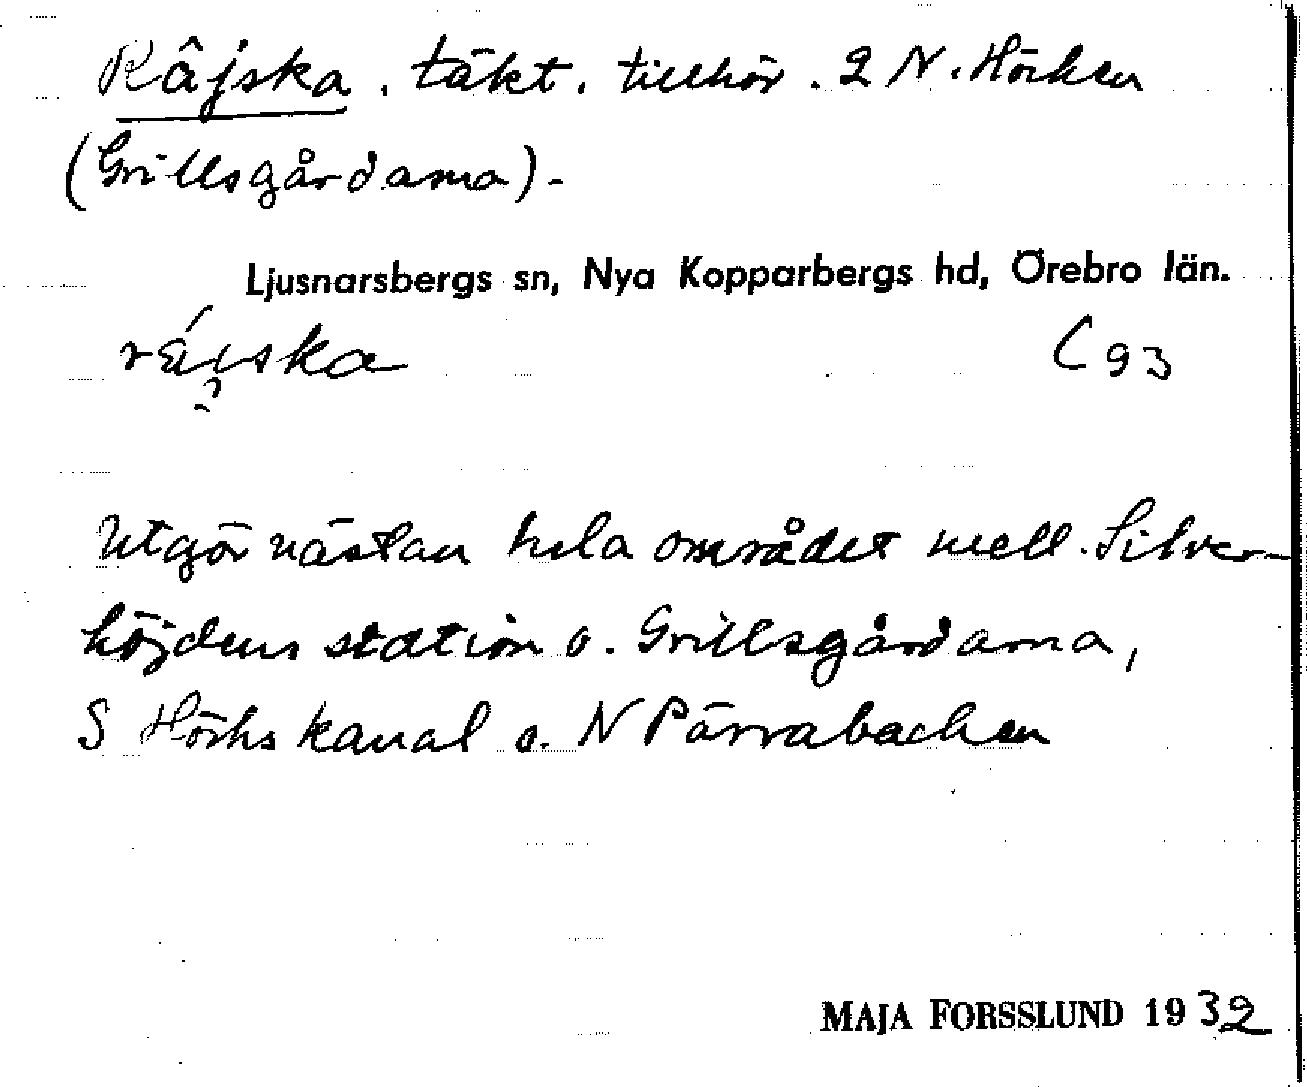 Râjska, täkt, tillhör. 2 N. Hörken
(Grillsgårdarna).
Ljusnarsbergs sn, Nya Kopparbergs hd, Örebro län.
(93
Utgör nästan hela området mell. Silver-
höjdens station o. Grillsgårdarna,
S Hörks kanal o. N Pärrabacken
MAJA FORSSLUND 1932